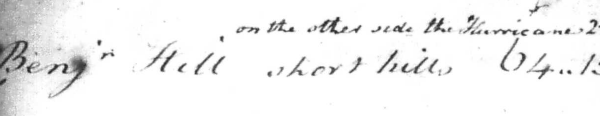 on the other side the Hurricane 2
Benj'n Hill short hills 64..15